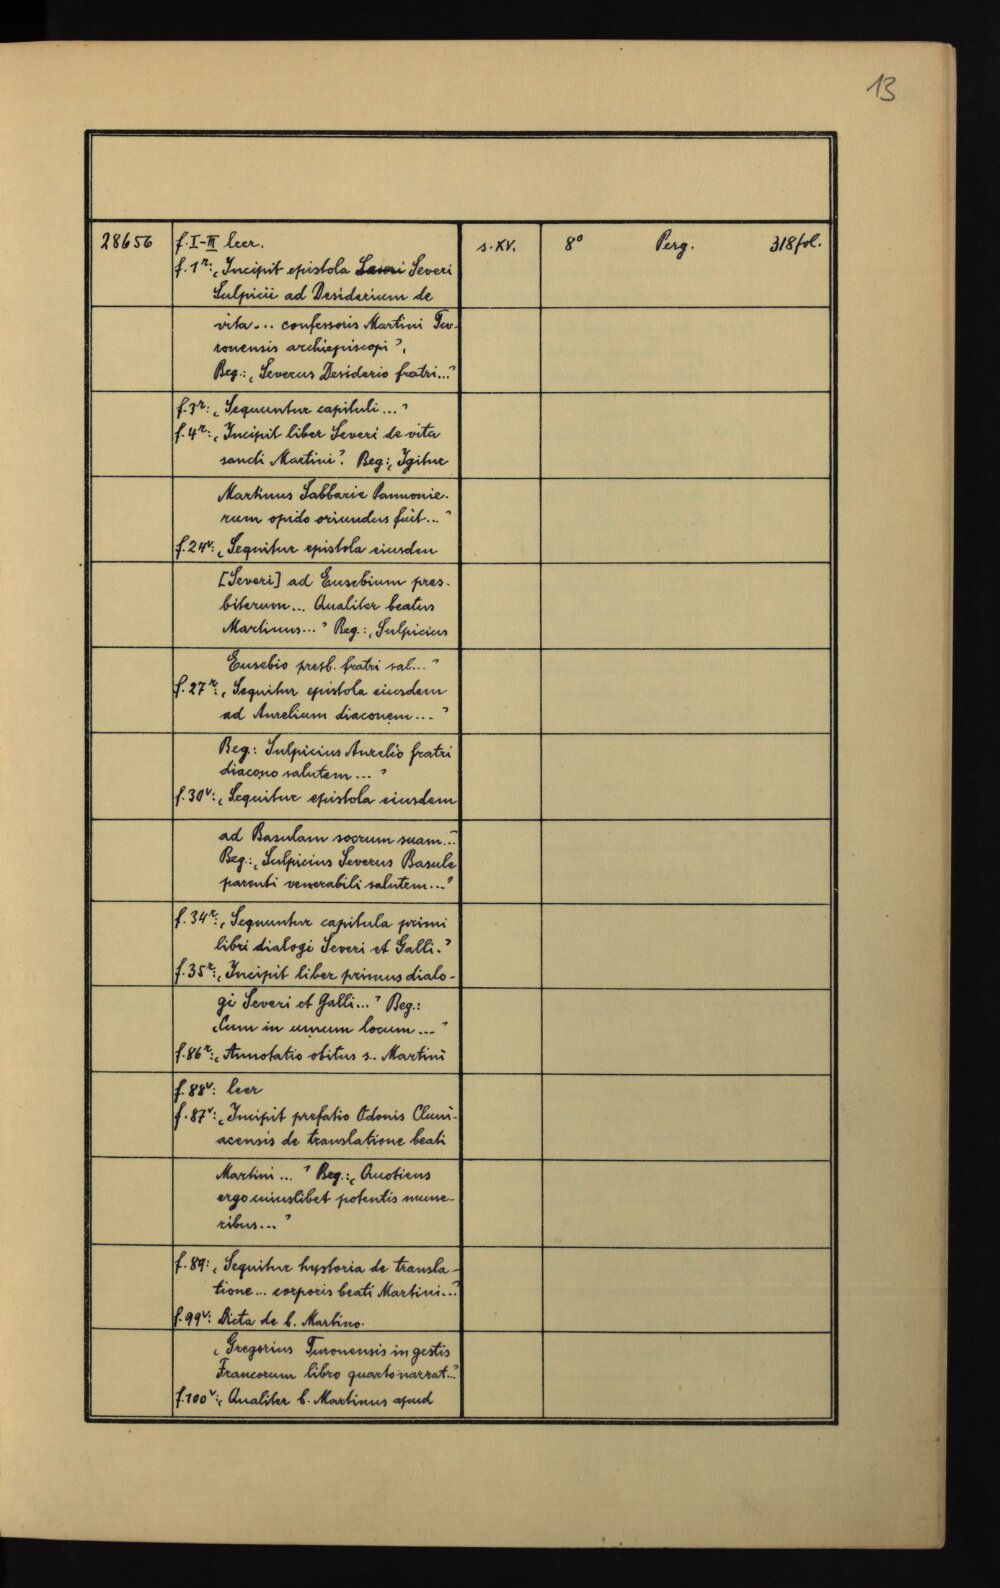 13
28656 f. I-III leer. s. XV. 8° Perg. 318 fol.
f. 1r: „Incipit epistola Severi
Sulpicii ad Desiderium de
vita... confessoris Martini Tu-
ronensis archiepiscopi“.
Beg.: „Severus Desiderio fratri...“
f. 3r: „Sequuntur capituli...“
f. 4r: „Incipit liber Severi de vita
sancti Martini“. Beg.: „Igitur
Martinus Sabbarie Pannonie-
rum opido oriundus fuit...“
f. 24v: „Sequitur epistola eiusdem
[Severi] ad Eusebium pres-
biterum... Qualiter beatus
Martinus...“ Beg.: „Sulpicius
Eusebio presb. fratri sal...“
f. 27r: „Sequitur epistola eiusdem
ad Aurelium diaconem...“
Beg.: Sulpicius Aurelio fratri
diacono salutem...“
f. 30v: „Sequitur epistola eiusdem
ad Basulam socrum suam...“
Beg.: „Sulpicius Severus Basule
parenti venerabili salutem...“
f. 34r: „Sequuntur capitula primi
libri dialogi Severi et Galli.“
f. 35r: „Incipit liber primus dialo-
gi Severi et Galli...“ Beg.:
„Cum in unum locum...“
f. 86r: „Annotatio obitus s. Martini
f. 88v: leer
f. 87v: „Incipit prefatio Odonis Cluni-
acensis de translatione beati
Martini...“ Beg.: „Quotiens
ergo cuiuslibet potentis mune-
ribus...“
f. 89: „Sequitur hystoria de transla-
tione... corporis beati Martini...“
f. 99v: Dicta de b. Martino.
„Gregorius Turonensis in gestis
Francorum libro quarto narrat...“
f. 100v: „Qualiter b. Martinus apud